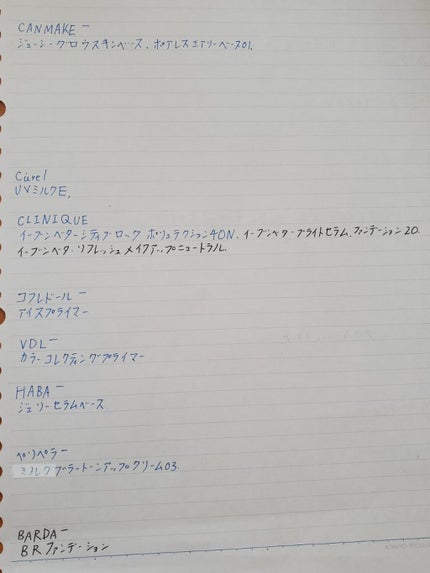 CANMAKE ー
ジューシーグロウスキンベース、ポアレスエアリーベース01.
Curel
UVミルクE,
CLINIQUE
イーブンベターシティブロック ポリュテクション40N、イーブンベターブライトセラム、ファンデーション20.
イーブンベタ・リフレッシュメイクアップニュートラル.
コフレドール ー
アイスプライマー
VDL ー
カラーコレクティングプライマー
HABA ー
ジェリーセラムベース
ペリペラ ー
ミルクブラートーンアップクリーム03.
BARDA ー
BRファンデーション